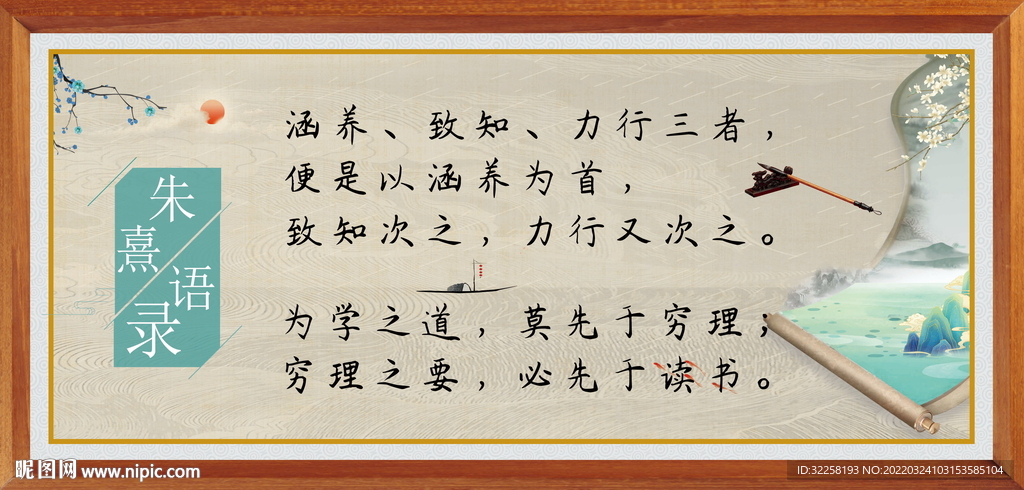 朱熹语录
涵养、致知、力行三者，
便是以涵养为首，
致知次之，力行又次之。
为学之道，莫先于穷理；
穷理之要，必先于读书。
昵图网 www.nipic.com
ID:32258193 NO:20220324103153585104